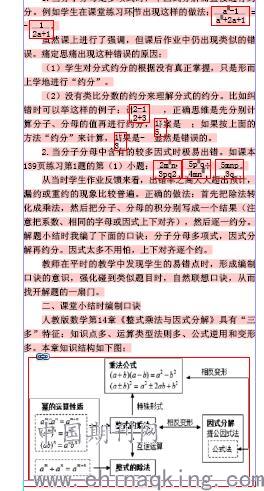 分，例如学生在课堂练习环节出现这样的做法：
虽然课上进行了强调，但课后作业中仍出现类似的错
误。痛定思痛出现这种错误的原因：
（1）学生对分式约分的根据没有真正掌握，只是形而
上学地进行“约分”。
（2）没有类比分数的约分来理解分式的约分。比如纠
错时可以举这样的例子：，正确思维是先分别计
算分子、分母的值再进行约分，结果是；如果按上面的
方法“约分”来计算，结果是显然是错误的。
2.当分子分母中含有的较多因式时极易出错。如课本
139页练习第1题的第（1）小题：
从当时学生作业反馈来看，出错率之高大大超出预计，
漏约或重约的现象比较普遍。正确的做法：首先把除法转
化成乘法，然后把分子、分母的积分别写成一个结果（注
意把系数、相同的字母或因式上下对齐），然后逐一约分。
解题小结时我编了下面的口诀：分子分母多项式，因式分
解再约分。因式太多不用怕，上下对齐逐个约。
教师在平时的教学中发现学生的易错点时，形成编制
口诀的意识，强化碰到类似题目时，自然联想口诀，从而
找开解题的一扇门。
二、课堂小结时编制口诀
人教版数学第14章《整式乘法与因式分解》具有“三
多”特征：知识点多、运算类型法则多、公式逆用和变形
多。本章知识结构如下图：
重法公式
(a+b)(a-b)=a²-b²
(a±b)²=a²±2ab+b²
相反变形
特殊形式
幂的运算性质
相反变形
因式分解
提公因式法
公式法
互逆运算
整式的除法
中国期刊网
www.chinaqking.com